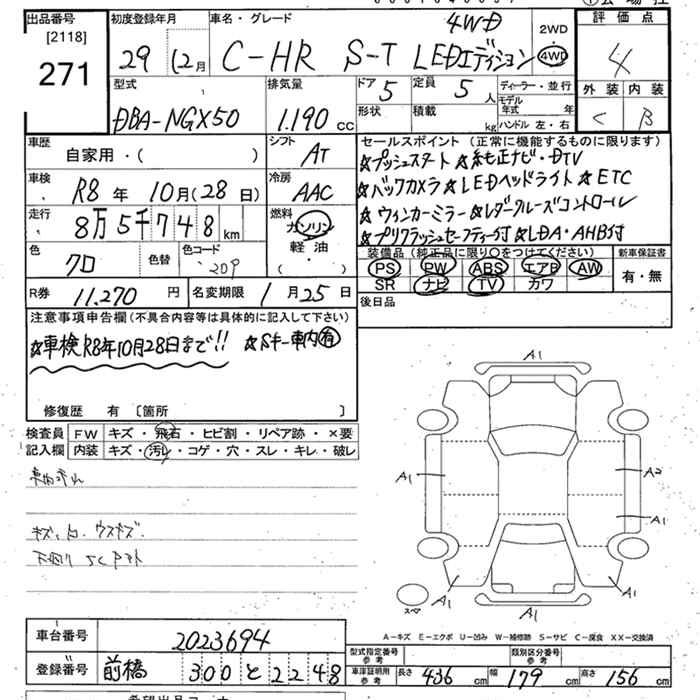 出品番号
[2118]
271
初度登録年月
29 年 12月
車名・グレード
4WD
C-HR S-T LEDエディション
2WD
4WD
評価点
4
外装 内装
C B
型式
DBA-NGX50
排気量
1.190 cc
ドア 5
定員 5 人
形状
積載 kg
ディーラー・並行
モデル年式 年
ハンドル 左・右
車歴
自家用・( )
シフト
AT
車検
R8 年 10月(28日)
冷房
AAC
走行
8万5千748km
燃料
ガソリン
軽油
・( )
色
クロ
色替
色コード
209
R券 11.270 円
名変期限 1月25日
セールスポイント (正常に機能するものに限ります)
☆プッシュスタート ☆純正ナビ・DTV
☆バックカメラ ☆LEDヘッドライト ☆ETC
☆ウィンカーミラー ☆レーダークルーズコントロール
☆プリクラッシュセーフティー付 ☆LDA・AHB付
装備品(純正品に限り○をつけてください) 新車保証書
PS PW ABS エアB AW
SR ナビ TV カワ
有・無
後日品
注意事項申告欄(不具合内容等は具体的に記入して下さい)
☆車検R8年10月28日まで!! ☆Sキー車内有
修復歴 有 〔箇所 〕
検査員 FW キズ・飛石・ヒビ割・リペア跡・×要
記入欄 内装 キズ・汚レ・コゲ・穴・スレ・キレ・破レ
キズ、凹、ウスキズ.
A1
A1
A1
A2
A1
A1
A1
A1
スペア
A-キズ E-エクボ U-凹み W-補修跡 S-サビ C-腐食 XX-交換済
車台番号 2023694
登録番号 前橋 300 と 2248
型式指定番号 参考
類別区分番号 参考
車庫証明用 参考 長さ 436 cm 幅 179 cm 高さ 156 cm